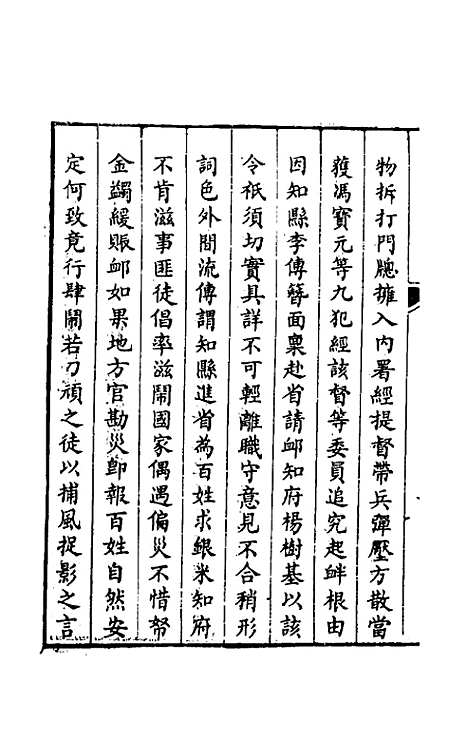 物拆打門牕擁入內署經提督帶兵彈壓方散當
獲馮寳元等九犯經該督等委員追究起衅根由
因知縣李傳簪面稟赴省請䘏知府楊樹基以該
令祇須切實具詳不可輕離職守意見不合稍形
詞色外間流傳謂知縣進省為百姓求銀米知府
不肯滋事匪徒倡率滋鬧國家偶遇偏災不惜帑
金蠲緩賑䘏如果地方官勘災卽報百姓自然安
定何致竟行肆鬧若刁頑之徒以捕風捉影之言